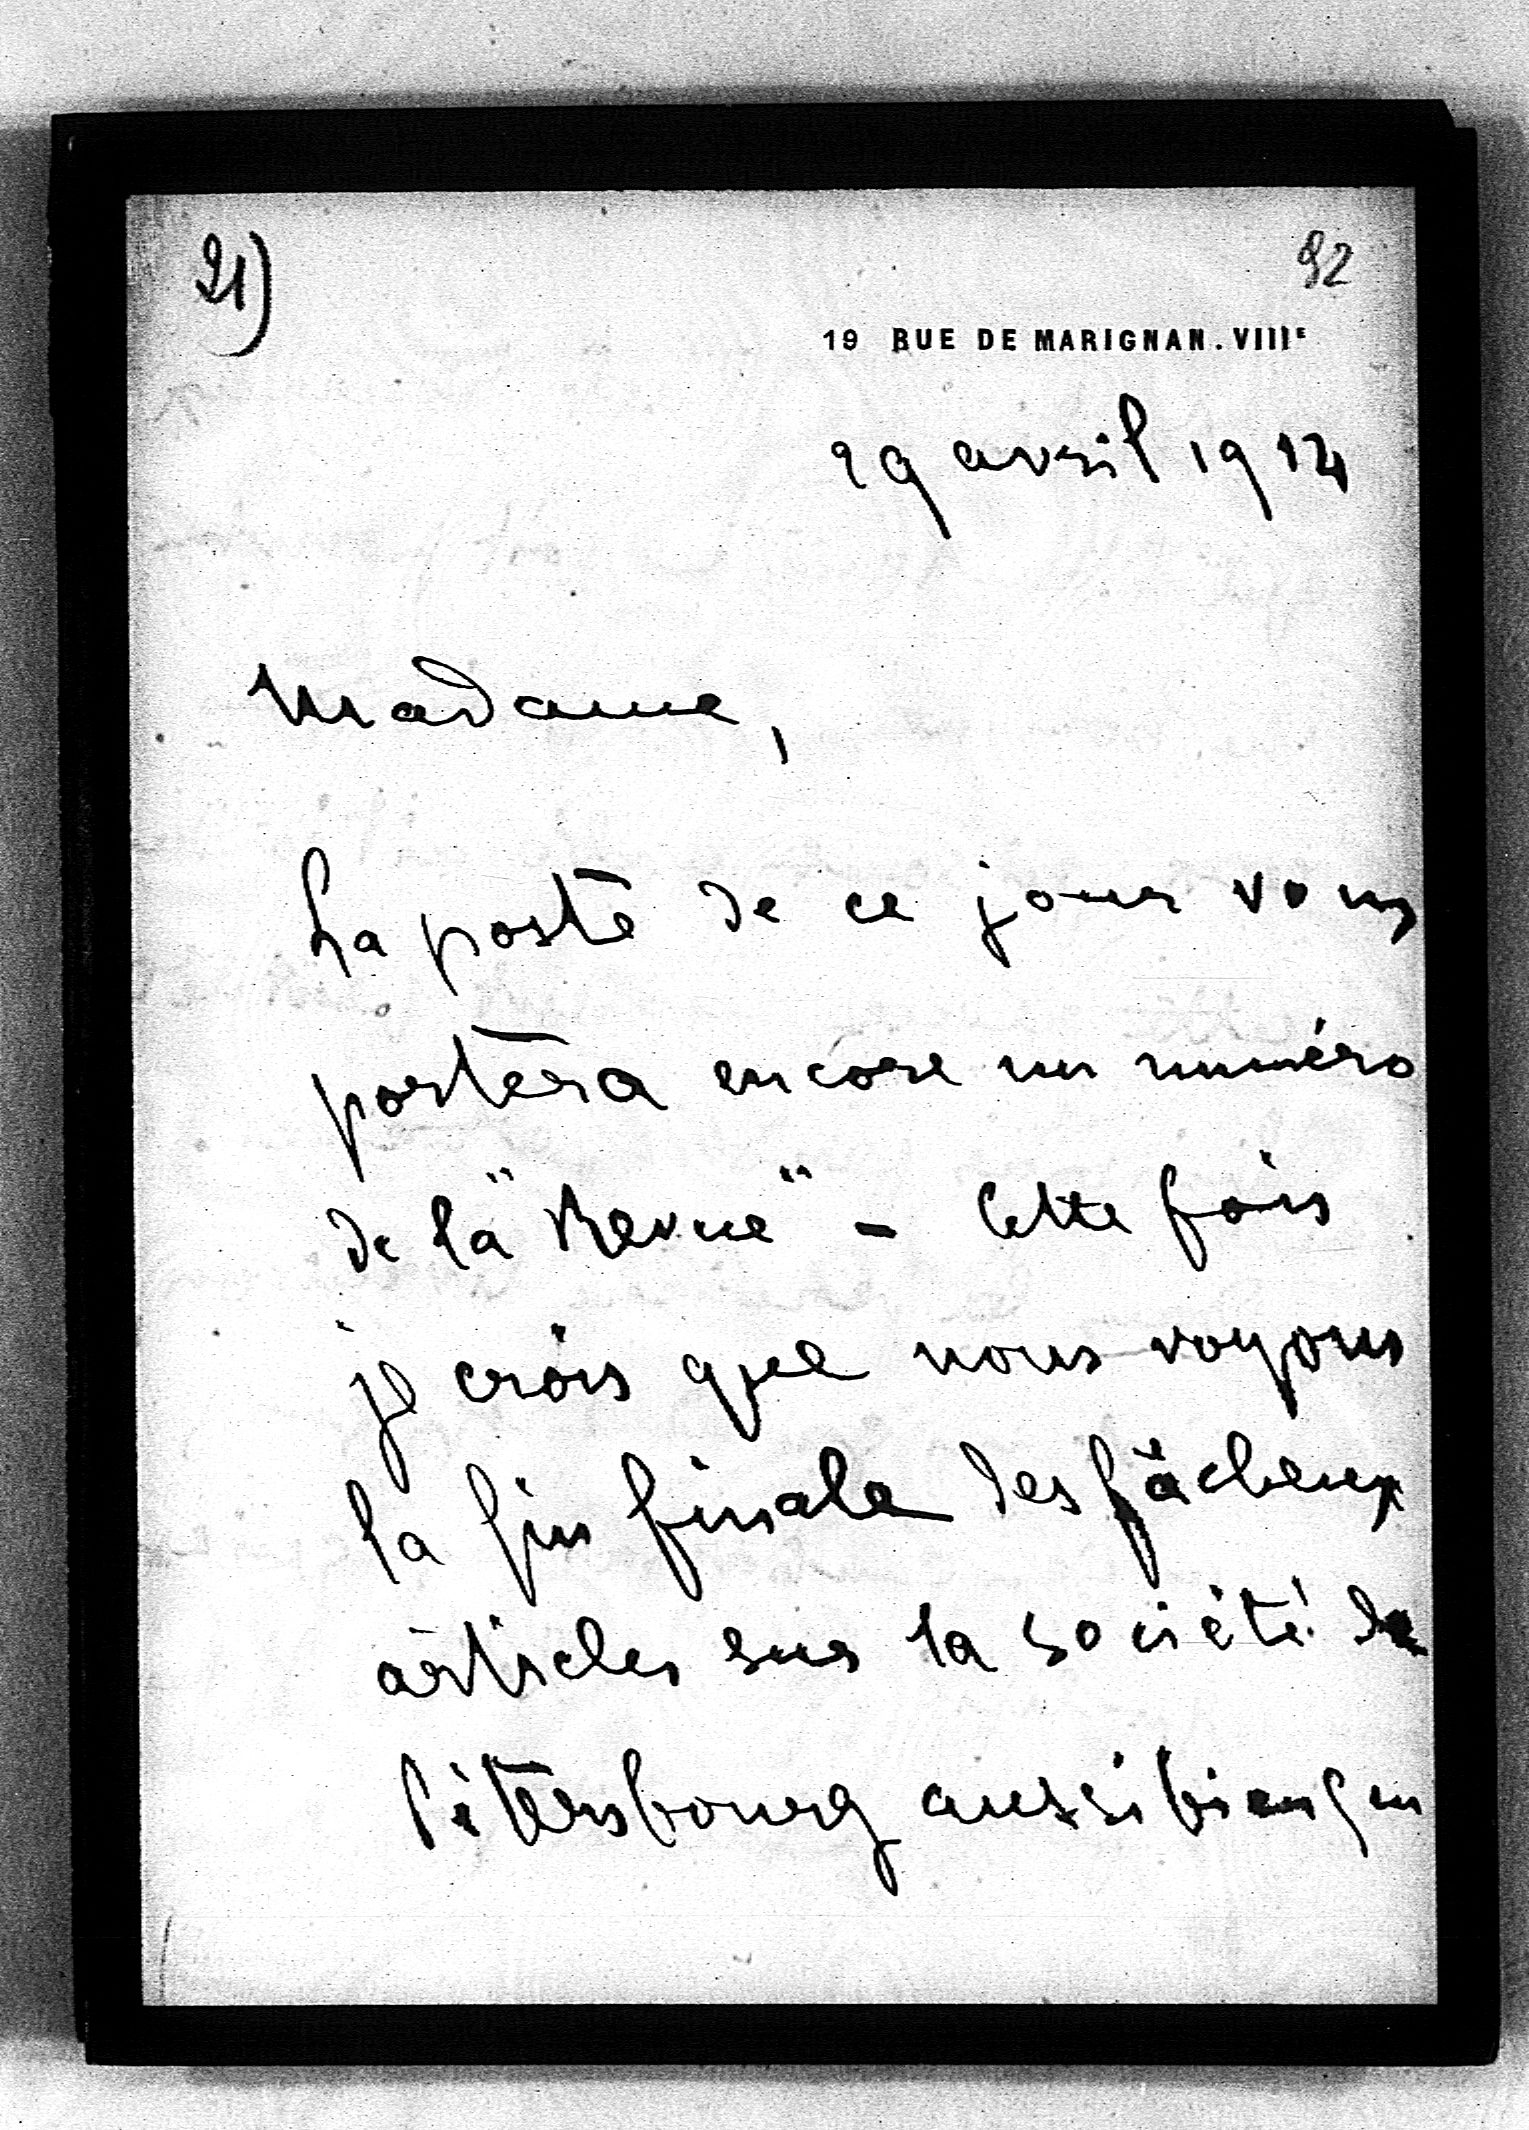 21)
92
19 RUE DE MARIGNAN. VIIIE
29 avril 1914
Madame,
La poste de ce jour vous
portera encore un numéro
de la "Revue" - Cette fois
je crois que nous voyons
la fin finale des fâcheux
articles sur la société de
Pétersbourg aussi bien qu